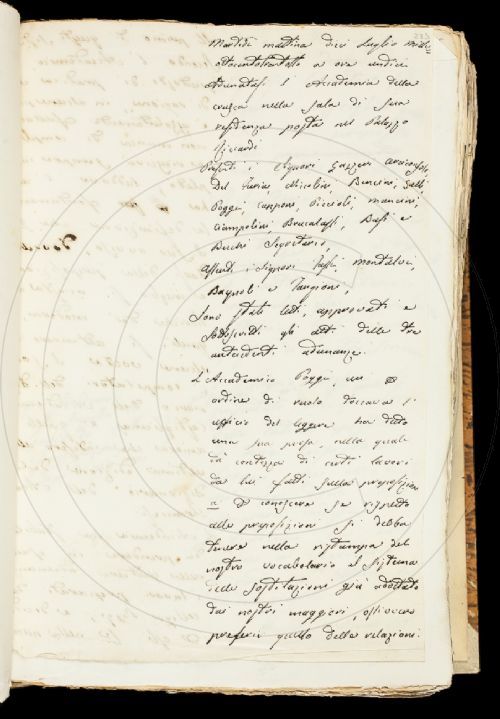 Martedì mattina dieci Luglio mille
ottocentotrentotto a ore undici
Adunatasi l'Accademia della
crusca nella sala di sua
residenza posta nel Palazzo
Riccardi
Presenti i Signori Gazzeri arciconsolo,
Del Furia, Niccolini, Bencini, Gelli,
Poggi, Capponi, Piccioli, mancini,
Ciampolini, Brucalassi, Basi e
Becchi Segretario,
Assenti i Signori montalvi,
Bagnoli e Targioni,
Sono state letti, approvati e
sottoscritti gli atti delle tre
antecedenti adunanze.
L'Accademico Poggi, cui
ordine di ruolo toccava l'
ufficio del leggere ha dato
una sua prosa, nella quale
dà contezza di certi lavori
da lui fatti sulla preposizione
a di conoscere se rispetto
alle preposizioni si debba
tenere nella ristampa del
nostro vocabolario il sistema
delle sostituzioni già adottato
dai nostri maggiori, ossivvero
preferir quello delle relazioni